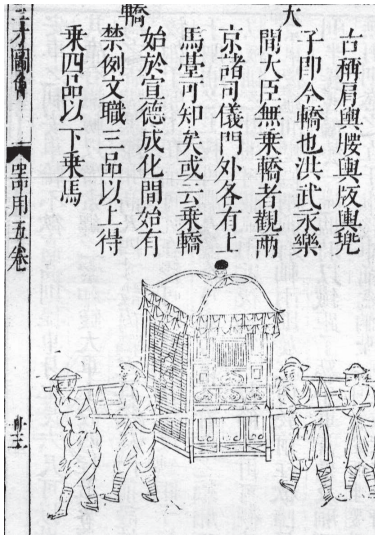 大轎
古稱肩輿腰輿版輿兠
子即今轎也洪武永樂
間大臣無乘轎者觀兩
京諸司儀門外各有上
馬臺可知矣或云乘轎
始於宣德成化間始有
禁例文職三品以上得
乘四品以下乘馬
三才圖會
器用五卷
卅三